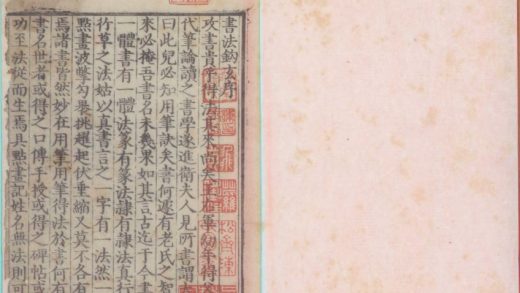 書法鉤玄序
攻書貴乎得法其來尚矣王右軍幼年得
代筆論讀之書學遂進衛夫人見所書謂
曰此兒必知用筆訣矣書何遽有老氏之智
來必掩吾書名未幾果如其言古迄于今書
一體書有一體法篆有篆法隸有隸法真行
行草之法姑以真書言之一字有一法然一
點畫波撆勾挑趯起伏垂縮又莫不各有
焉諸書皆然妙在用筆用筆得法於書何有
書名世者或得之口傳手授或得之碑帖或
功至法從而生焉具點畫記姓名無法則可